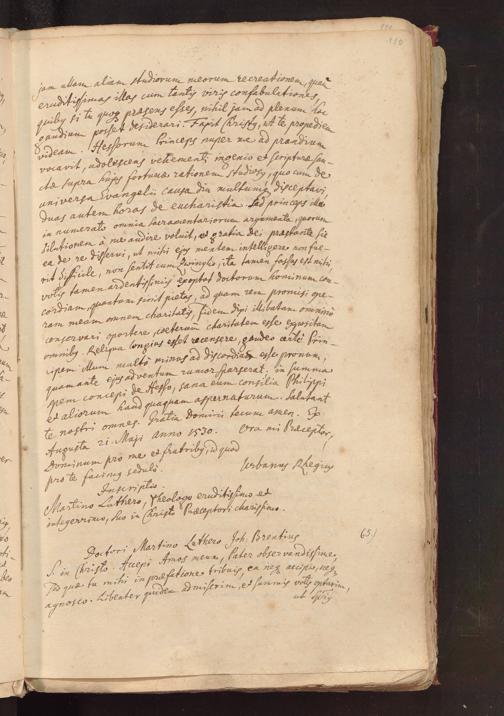 110
jam ullam aliam studiorum meorum recreationem, quam
eruditissimas illas cum tantis viris confabulationes,
quibus si te quoq praesens esses, nihil jam ad plenum hoc
gaudium posset desiderari. Faxit Christus, ut te propediem
videam. Hessorum Princeps nuper me ad prandium
vocavit, adolescens vehementi ingenio et scripturae san-
ctae supra hujus fortunae rationem studiosus, quo cum de
universa Evangelii causa diu multumq disceptavi
duas autem horas de eucharistia. Sed princeps ille
in numerato omnia Sacramentariorum argumenta, quorum
dilutionem a me audire voluit, et gratia dei praestante sic
ea de re disserui, ut mihi ejus mentem intelligere non fue-
rit difficile, non sentit cum Zwinglio, ita tamen fassus est mihi,
votis tamen ardentissimis exoptat doctorum hominum con-
cordiam, quantum sinit pietas, ad quam rem promisi ope-
ram meam omnem charitatis, fidem dixi illibatam omnino
conservari oportere, caeterum charitatem esse expositam
omnibus. Reliqua longius esset recensere, gaudeo certe Prin-
cipem illum multo minus ad discordiam esse pronum,
quam ante ejus adventum rumor sparserat. in summa
spem concepi de Hesso, sana eum consilia Philippi
et aliorum haud quaquam aspernaturum. Salutant
te nostri omnes. Gratia domini tecum amen. Ex
Augusta 21. Maji anno 1530. Ora mi Praeceptor,
Dominum pro me et fratribus, id quod
pro te facimus sedulo.
Urbanus Rhegius
Inscriptio.
Martino Luthero, Theologo eruditissimo et
integerrimo, suo in Christo Praeceptori charissimo.
65.)
Doctori Martino Luthero Joh. Brentius
S. in Christo. Accepi Amos meum, Pater observandissime,
sed quae tu mihi in praefatione tribuis, ea neq accipio, neq
agnosco. Libenter quidem admiserim, et summis votis optarim,
ut